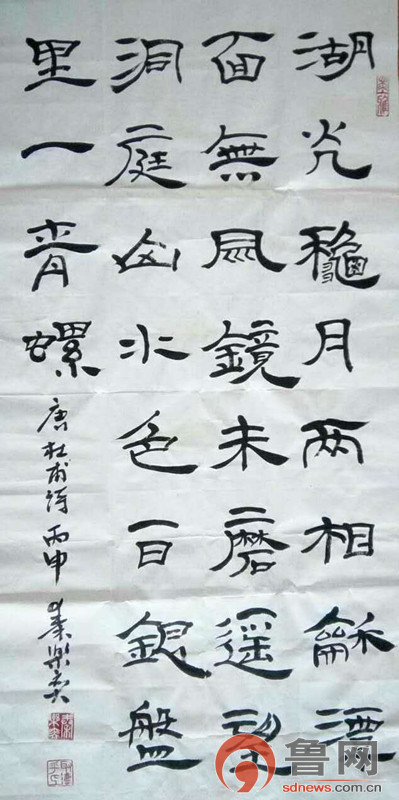 湖光龝月两相龢潭
面無風鏡未磨遥望
洞庭山水色白銀盤
里一青螺
唐杜甫詩丙申
鲁网
sdnews.com.cn